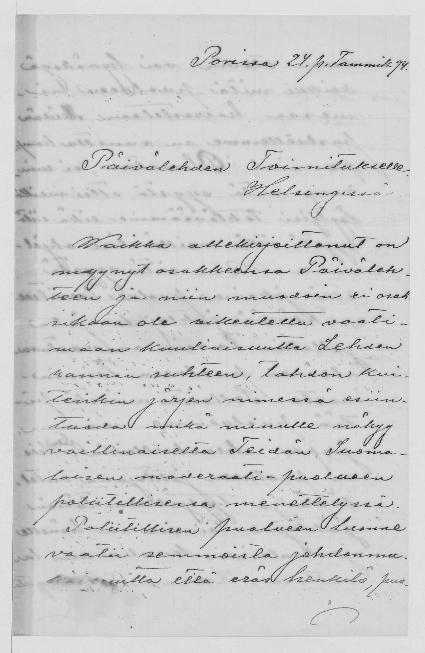 Porissa 24. p. Tammik. 94.
Päivälehden Toimitukselle.
Helsingissä
Vaikka allekirjoittanut on
myynyt osakkeensa Päivaleh-
teen ja niin muodoin ei osak-
sikaan ole oikeutettu vaati-
maan kuuliaisuutta Lehden
kannan suhteen, tahdon kui-
tenkin järjen nimessä esiin-
tuoda mikä minulle näkyy
vaillinaiselta Teidän Suoma-
laisen moderaati-puolueen
poliitillisessa menettelyssä.
Poliitillisen puolueen luonne
vaatii semmoista johdonmu-
kaisuutta että eräs henkilö, puo-